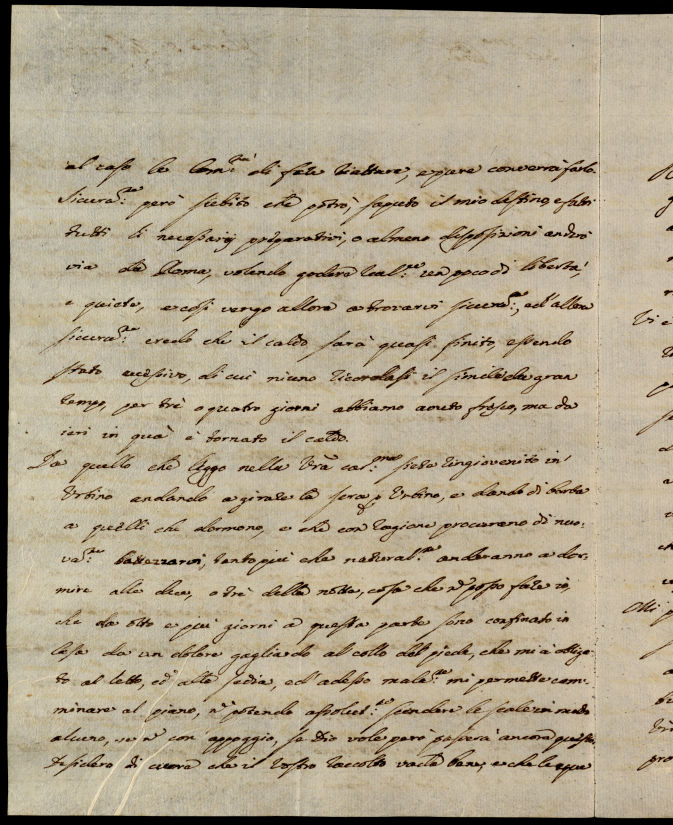 al caso le Com.ni di fare trattare, e pure converrà farlo.
Sicura.te però subito che potrò, saputo il mio destino, e fatti
tutti li necessarij preparativi, o almeno disposizioni andrò
via da Roma, volendo godere real.te un poco di libertà,
e quiete, e così vengo allora a trovarvi sicura.te, ed allora
sicura.te credo che il caldo sarà quasi finito, essendo
stato eccessivo, di cui niuno ricordasi il simile da gran
tempo, per trè o quatro giorni abbiamo avuto fresco, ma da
ieri in quà è tornato il caldo.
Da quello che leggo nella vrã car.ma siete ringiovenito in
Urbino andando a girare la sera p Urbino, e dando di barba
a quelli che dormono, e che con ragione procurano di nuo-
va.te battezzarvi, tanto più che natural.te anderanno a dor-
mire alle due, o trè della notte, cosa che nõ posso fare io,
che da otto e più giorni a questa parte sono confinato in
Casa da un dolore gagliardo al collo del piede, che mi à obliga-
to al letto, ed alla sedia, ed adesso mala.te mi permette cam-
minare al piano, nõ potendo assolut.te scendere le scale in modo
alcuno, se nõ con appoggio, se Dio vole però passerà ancora questa,
Desidero di cuore che il vostro raccolto vada bene, e che le que